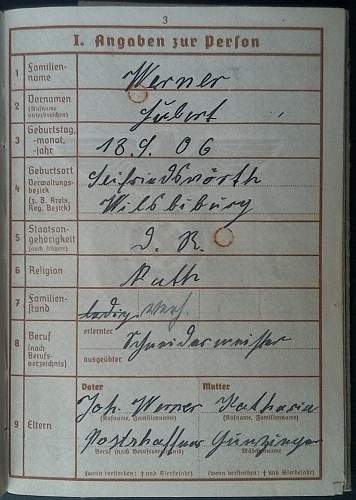 3
I. Angaben zur Person
1 Familien-
name
Werner
2 Vornamen
(Rufname
unterstreichen)
Hubert
3 Geburtstag,
-monat,
-jahr
18. 9. 06
4 Geburtsort
Verwaltungs-
bezirk
(z. B. Kreis,
Reg. Bezirk)
Seifriedswörth
Vilsbiburg
5 Staatsan-
gehörigkeit
(auch frühere)
D. R.
6 Religion
Kath
7 Familien-
stand
ledig verh.
8 Beruf
(nach
Berufs-
verzeichnis)
erlernter
Schneidermeister
ausgeübter
9 Eltern
Vater Mutter
Joh. Werner Katharia
(Rufname, Familienname) (Rufname, Familienname)
Postschaffner
Beruf (nach Berufsverzeichnis) Mädchenname
(wenn verstorben: † und Sterbejahr) (wenn verstorben: † und Sterbejahr)